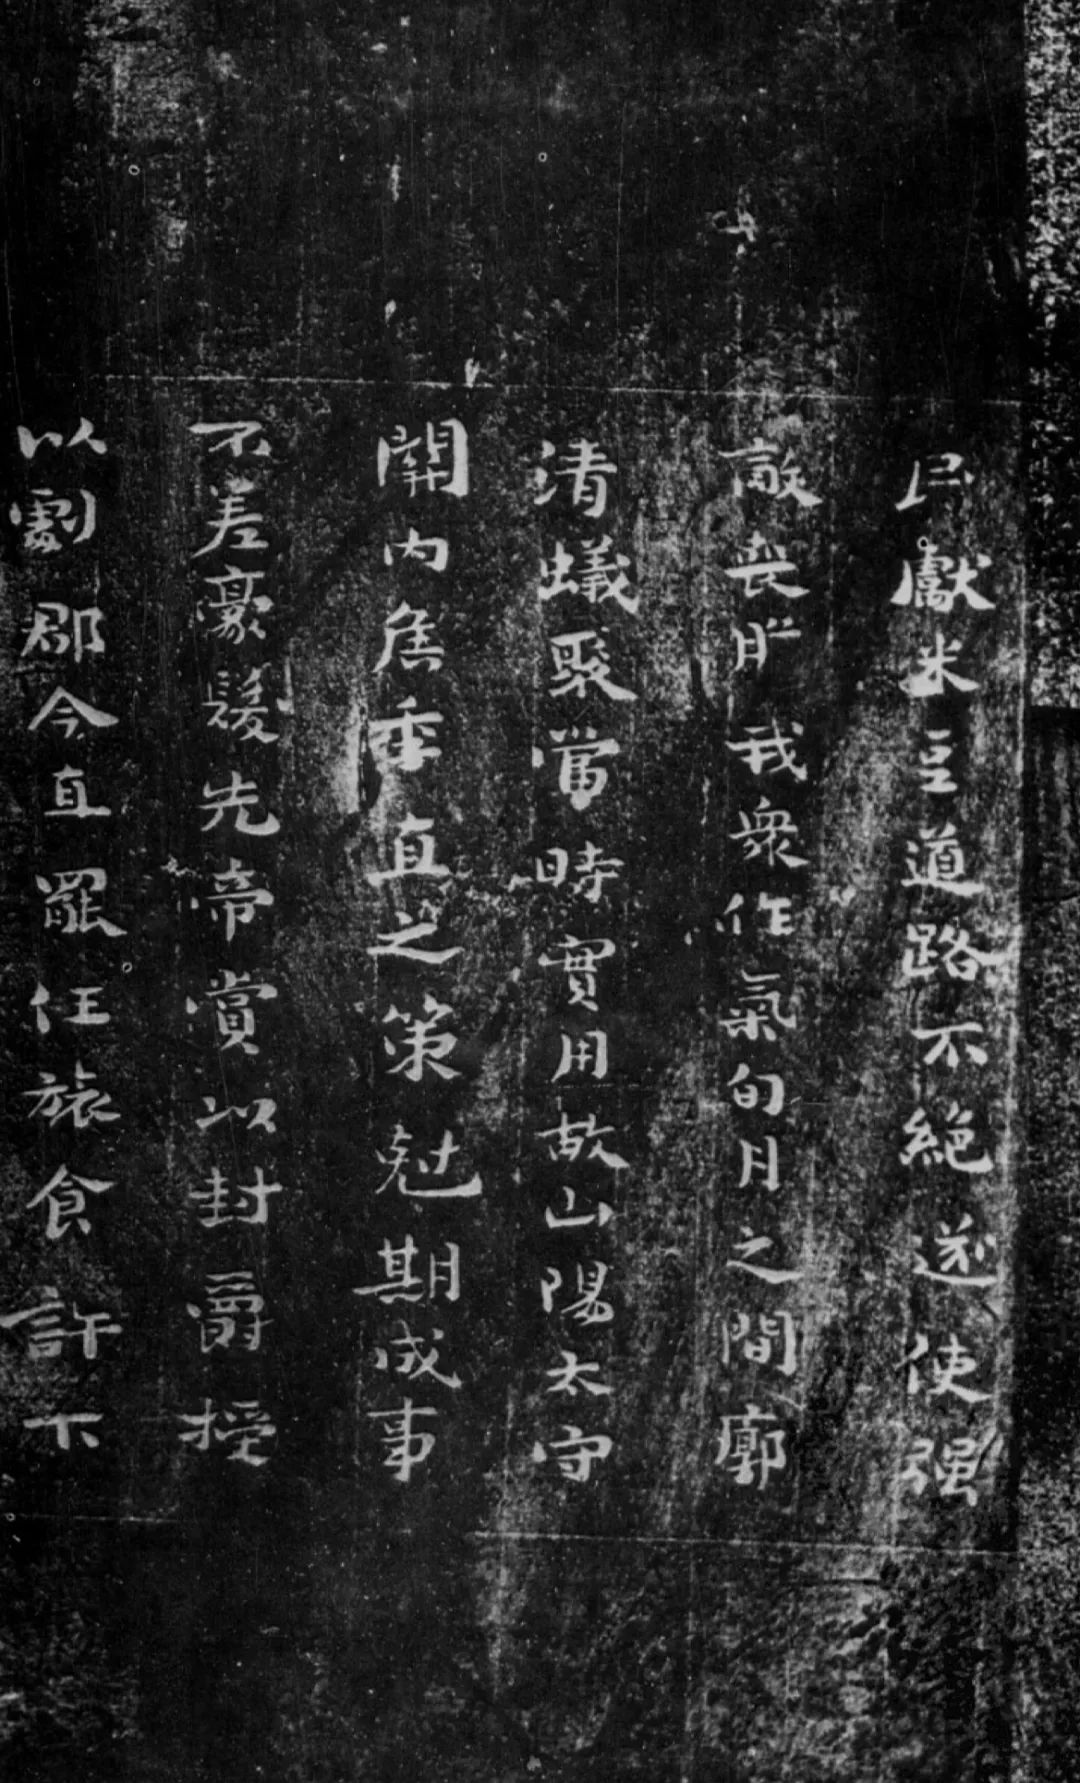 民獻米豆道路不絕遂使強
敵喪膽我眾作氣旬月之間廓
清蟻聚當時實用故山陽太守
關內侯季直之策剋期成事
不差豪髮先帝賞以封爵授
以劇郡今直罷任旅食許下